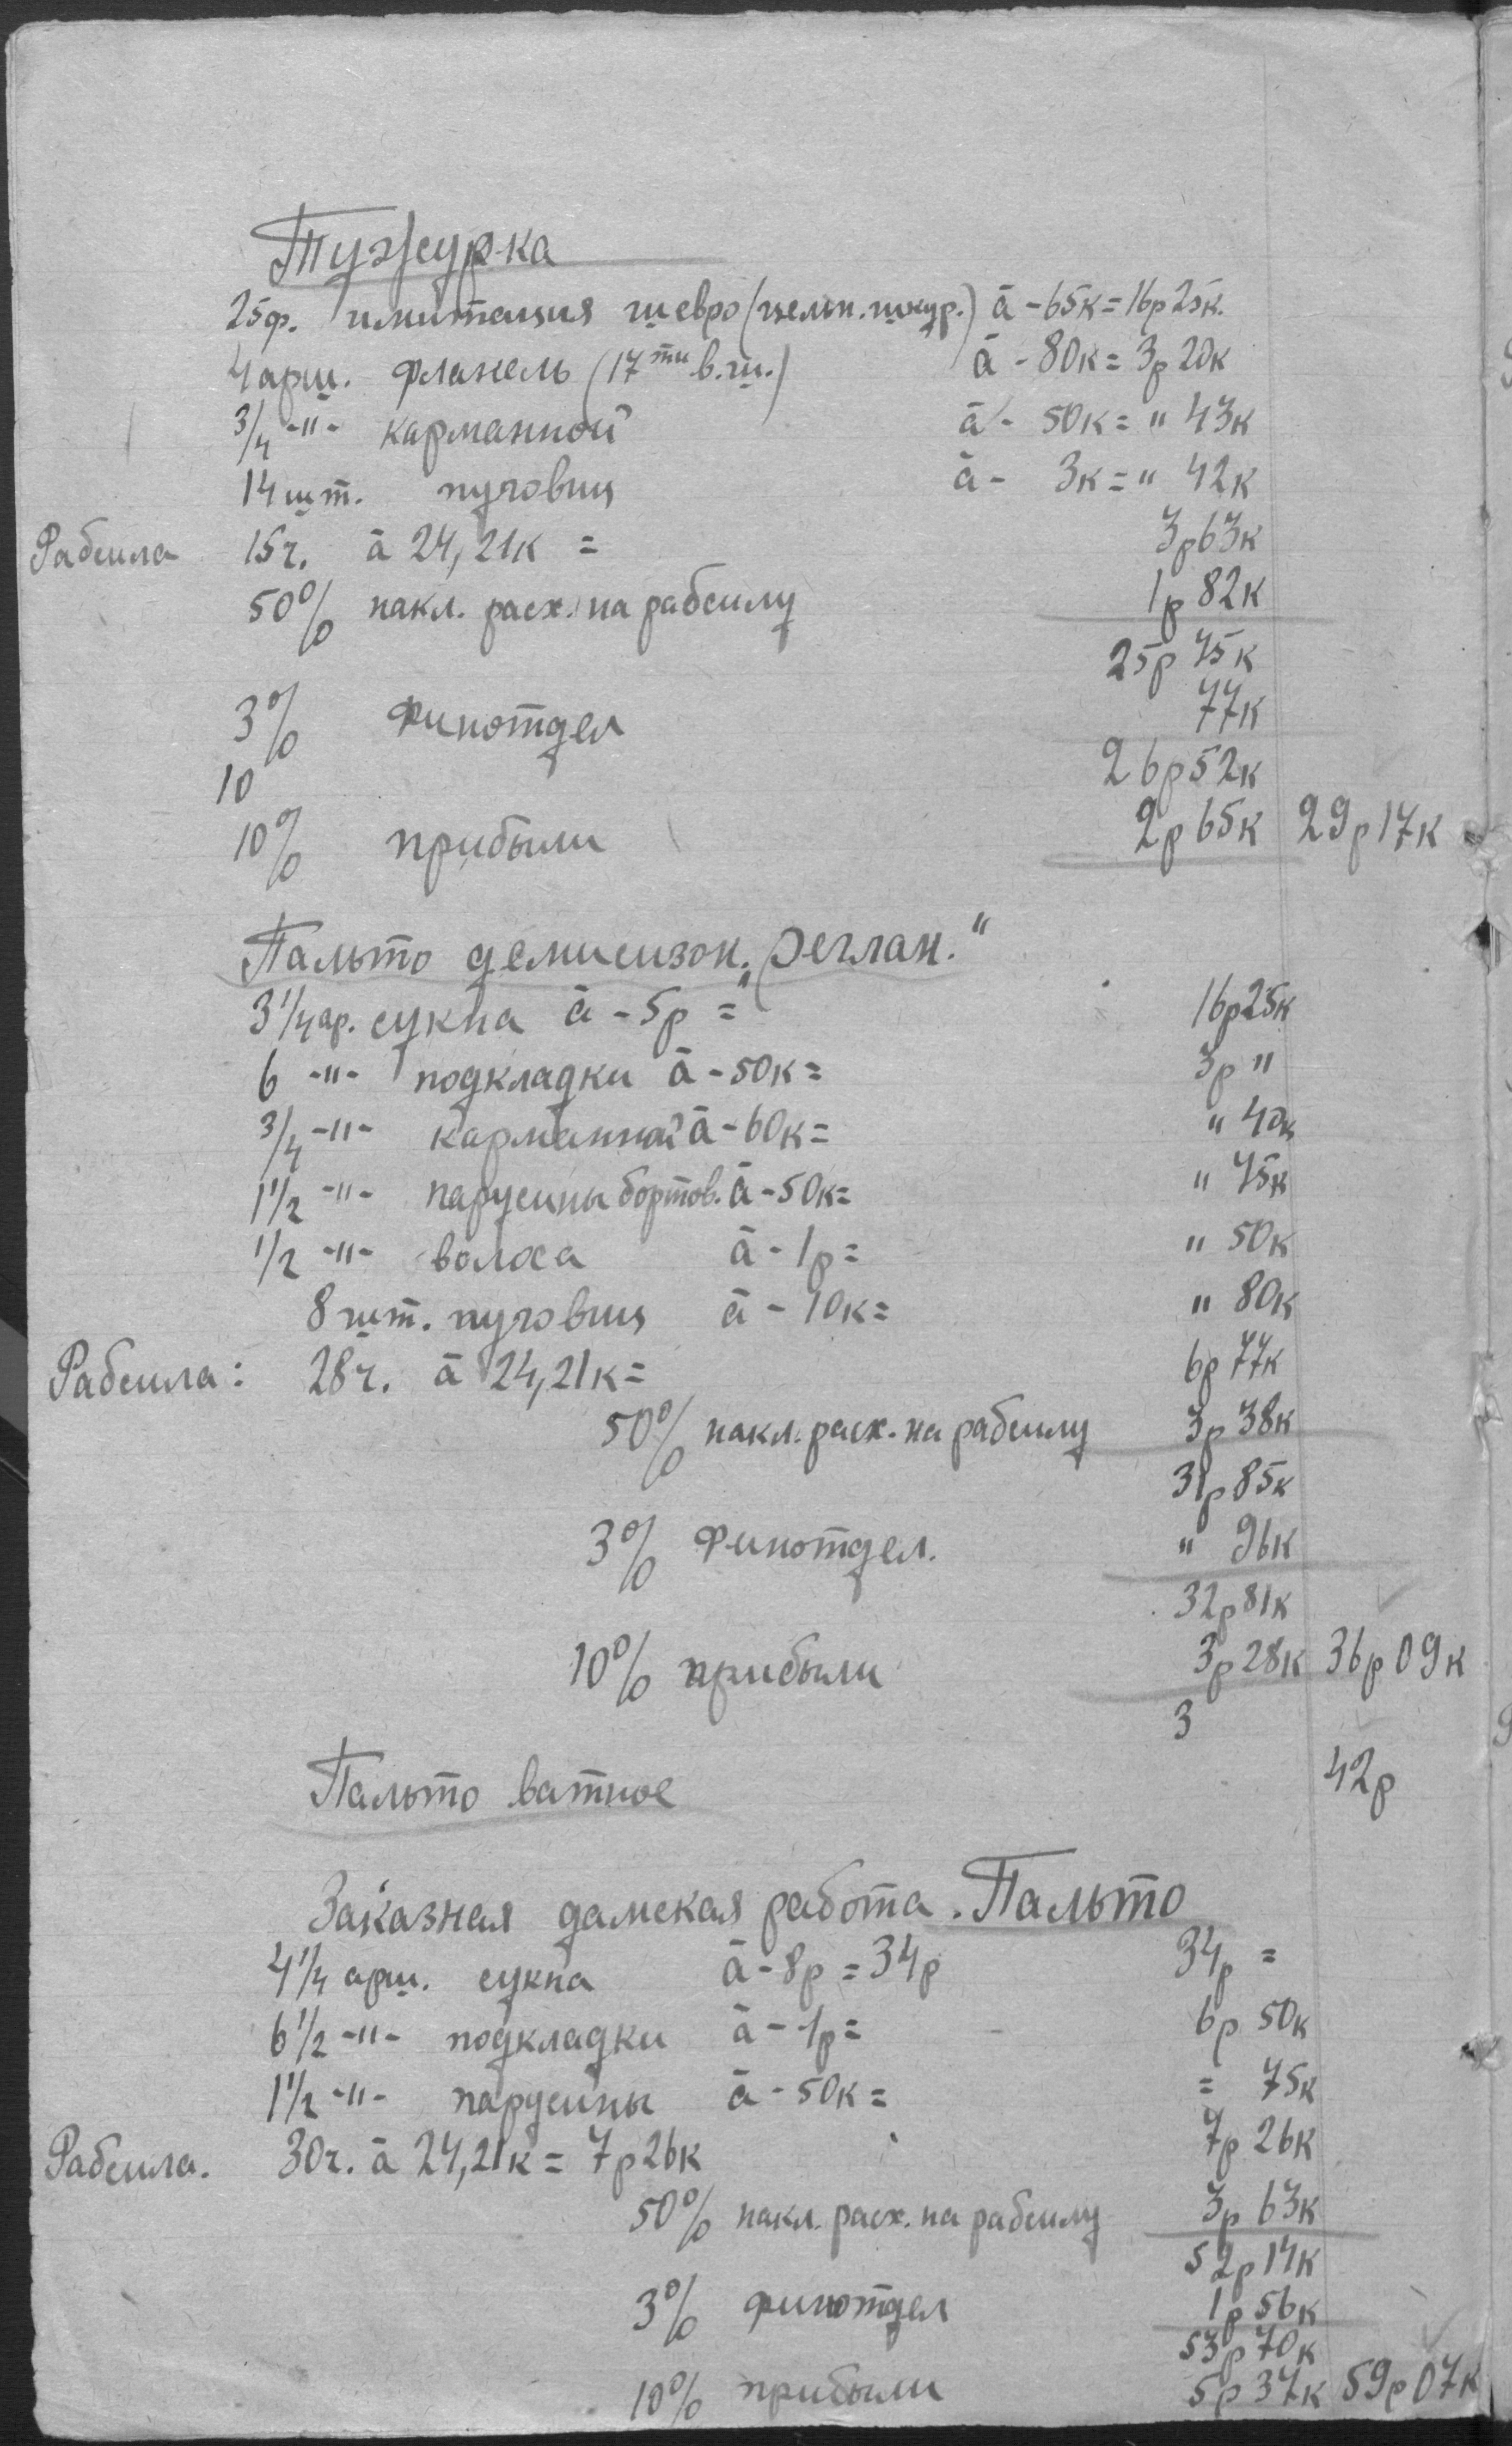 Тужурка
25ф. имитация шевро (цельн. шкур.) à - 65к = 16р 25к.
4 арш. фланель (17ти в. ш.) à - 80к = 3р 20к
3/4 -"- карманной à - 50к = " 43к
14 шт. пуговиц à - 3к = " 42к
Рабсила 15ч. à 24,21к = 3р 63к
50% накл. расх. на рабсилу 1р 82к
25р 75к
3% Финотдел 77к
10 26р 52к
10% прибыли 2р 65к 29р 17к
Пальто демисизон. "Реглан."
3 1/4 ар. сукна à - 5р = 16р 25к
6 -"- подкладки à - 50к = 3р "
3/4 -"- карманной à - 60к = " 40к
1 1/2 -"- парусины бортов. à - 50к = " 75к
1/2 -"- волоса à - 1р = " 50к
8 шт. пуговиц à - 10к = " 80к
Рабсила: 28ч. à 24,21к = 6р 77к
50% накл. расх. на рабсилу 3р 38к
31р 85к
3% Финотдел. " 96к
32р 81к
10% прибыли 3р 28к 36р 09к
3
Пальто ватное 42р
Заказная дамская работа. Пальто
4 1/4 арш. сукна à - 8р = 34р 34р =
6 1/2 -"- подкладки à - 1р = 6р 50к
1 1/2 -"- парусины à - 50к = = 75к
Рабсила. 30ч. à 24,21к = 7р 26к 7р 26к
50% накл. расх. на рабсилу 3р 63к
52р 14к
3% финотдел 1р 56к
53р 70к
10% прибыли 5р 37к 59р 07к